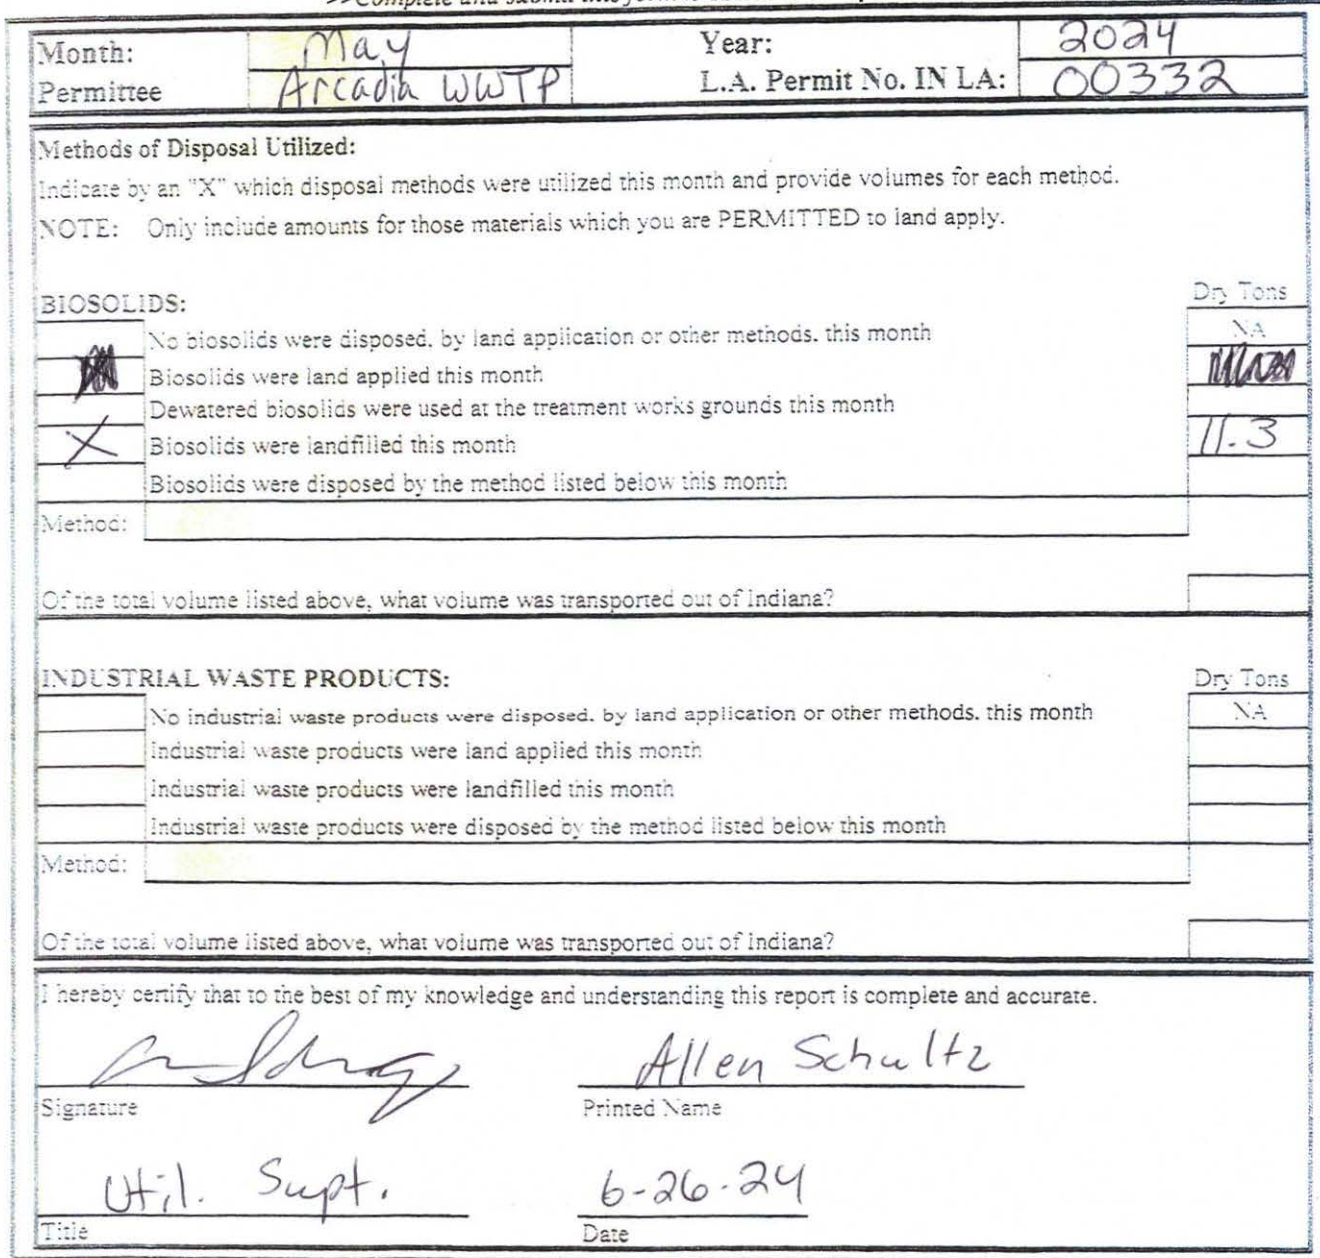 Month: May Year: 2024
Permittee Arcadia WWTP L.A. Permit No. IN LA: 00332
Methods of Disposal Utilized:
Indicate by an "X" which disposal methods were utilized this month and provide volumes for each method.
NOTE: Only include amounts for those materials which you are PERMITTED to land apply.
BIOSOLIDS: Dry Tons
No biosolids were disposed, by land application or other methods, this month NA
Biosolids were land applied this month
Dewatered biosolids were used at the treatment works grounds this month
X Biosolids were landfilled this month 11.3
Biosolids were disposed by the method listed below this month
Method:
Of the total volume listed above, what volume was transported out of Indiana?
INDUSTRIAL WASTE PRODUCTS: Dry Tons
No industrial waste products were disposed, by land application or other methods, this month NA
Industrial waste products were land applied this month
Industrial waste products were landfilled this month
Industrial waste products were disposed by the method listed below this month
Method:
Of the total volume listed above, what volume was transported out of Indiana?
I hereby certify that to the best of my knowledge and understanding this report is complete and accurate.
Allen Schultz
Signature Printed Name
Util. Supt. 6-26-24
Title Date